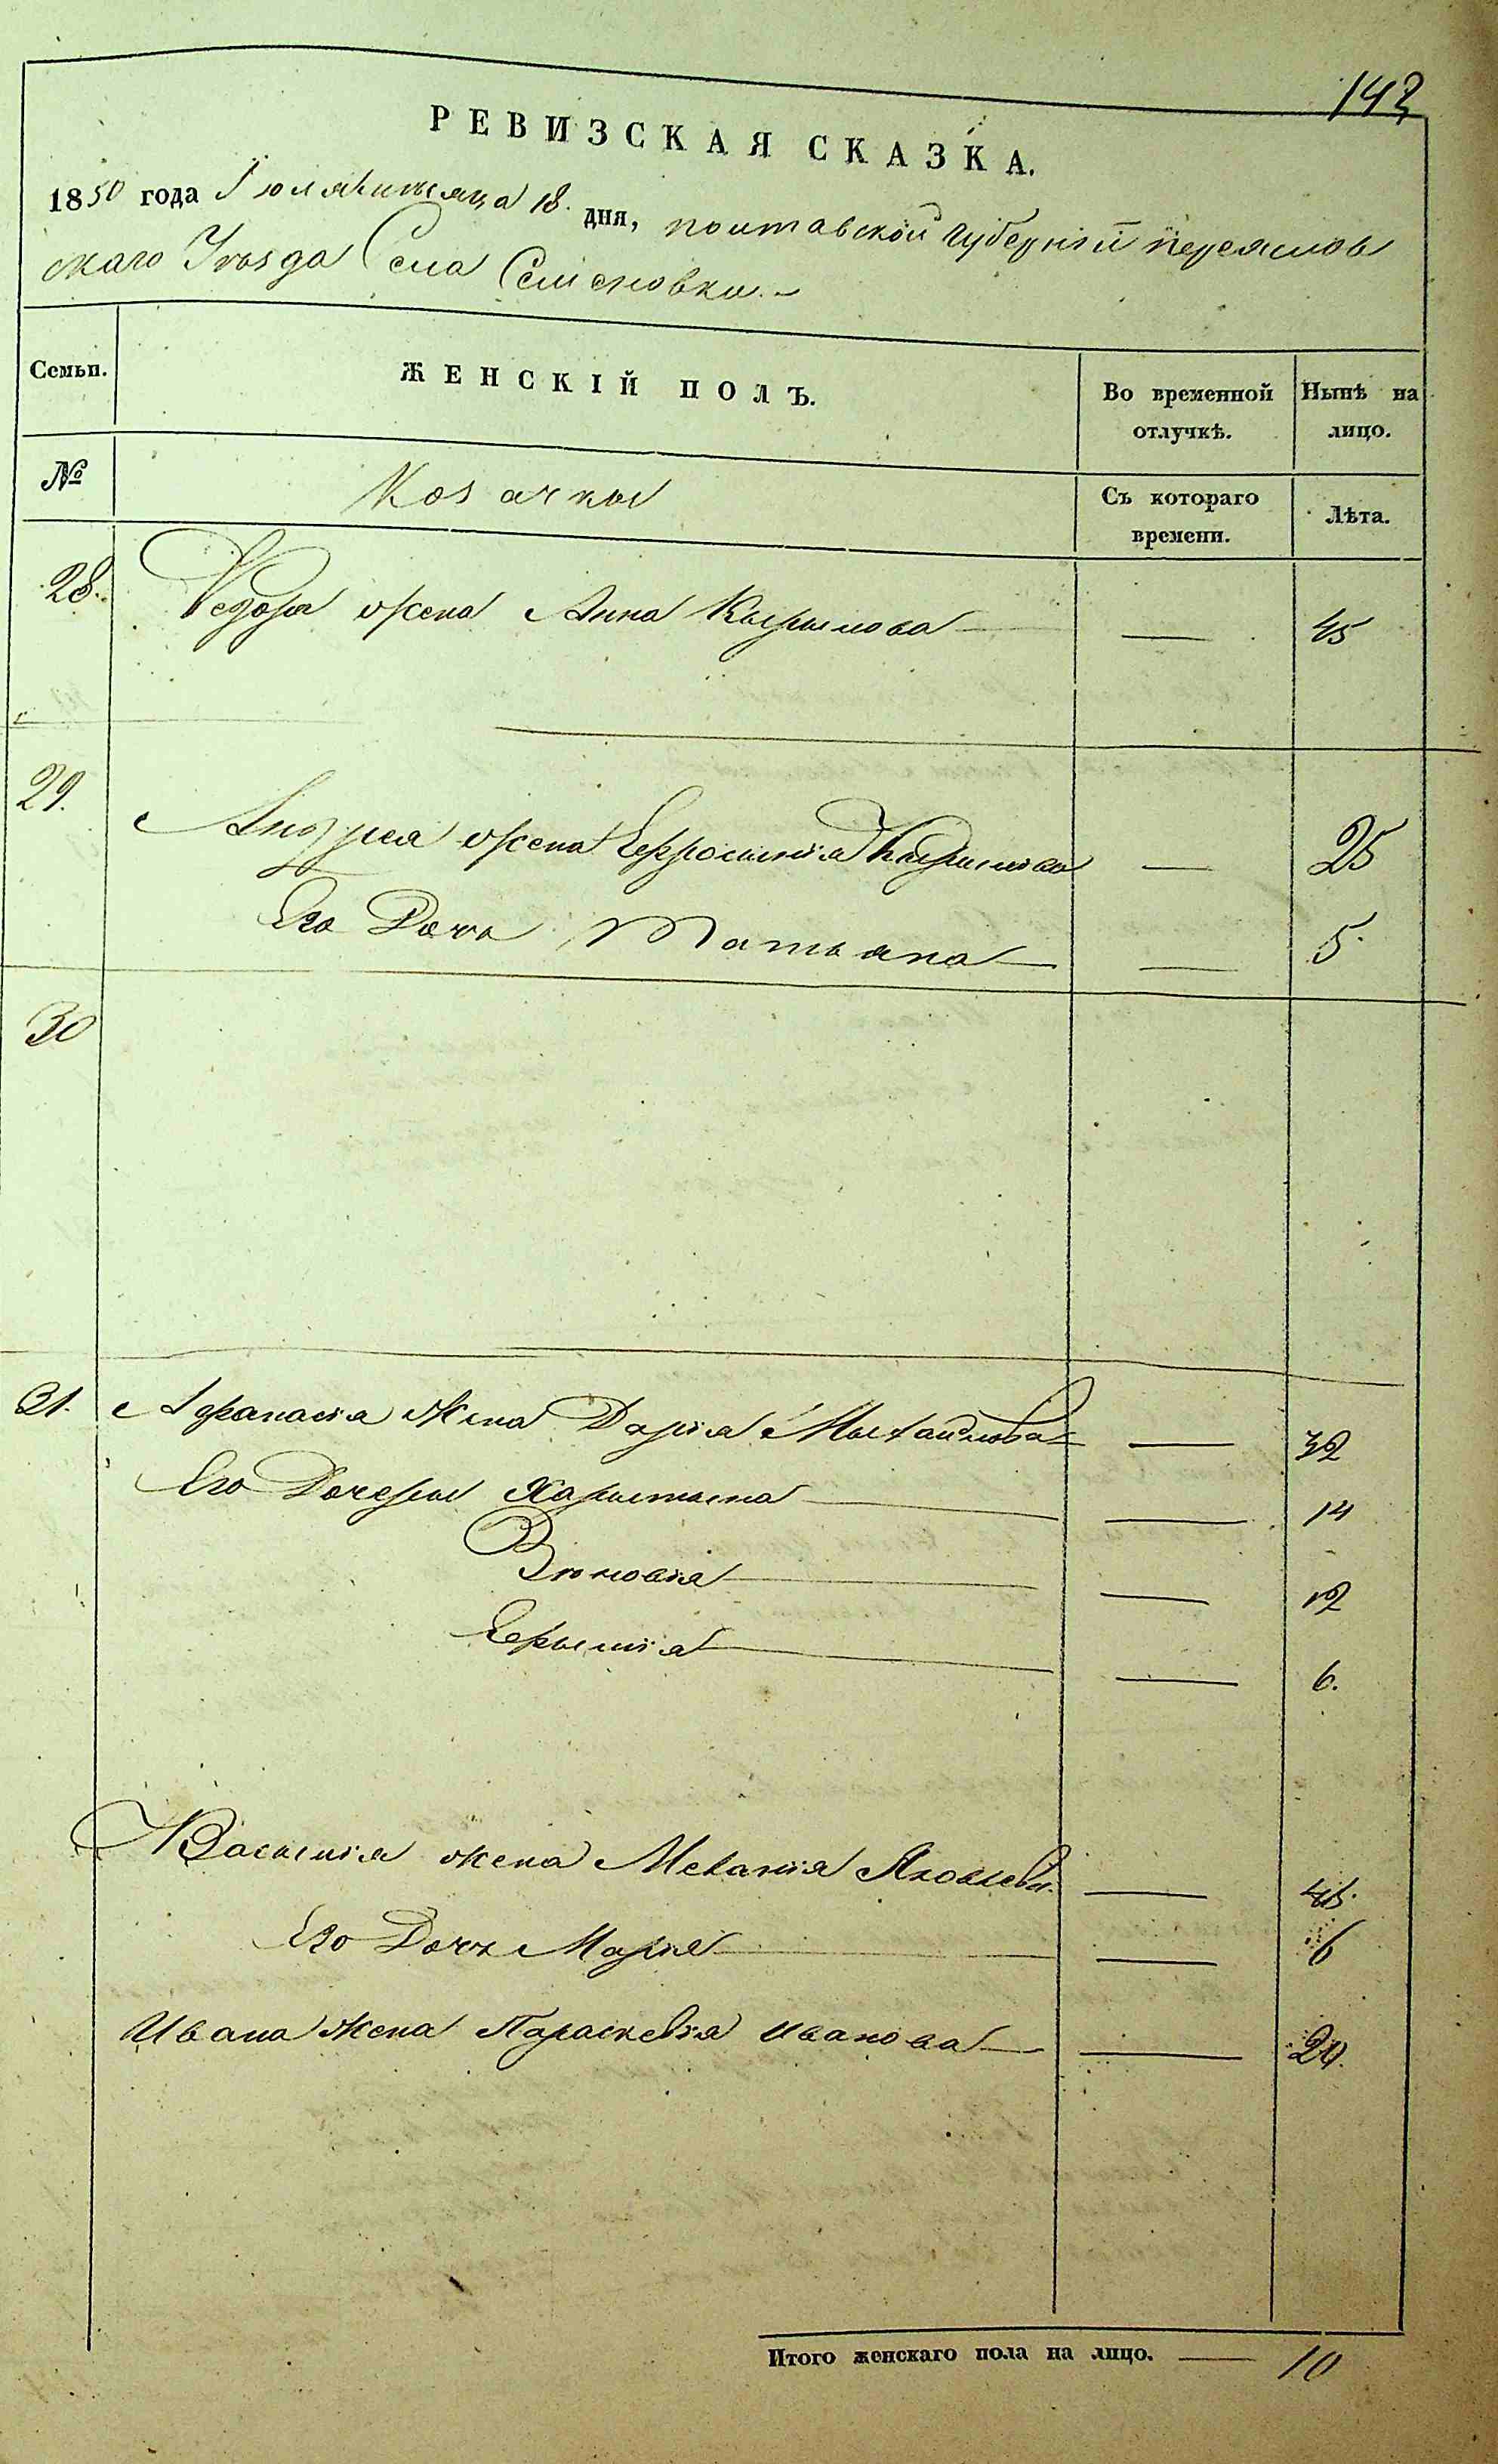 143
РЕВИЗСКАЯ СКАЗКА.
1850 года Іюля месяца 18 дня, полтавской Губерніи переяслов
скаго Уѣзда Села Семеновки.
Семьи.
ЖЕНСКІЙ ПОЛЪ.
Во временной отлучкѣ.
Нынѣ на лицо.
№
Козачки
Съ котораго времени.
Лѣта.
28. Федора жена Анна Кырылова — — 45
29. Андрея жена Ефросинія Кирилова — 25
Его Дочь Татьяна — — 5.
30
31. Афанасія Жена Дарія Мыхайлова — — 32
Его Дочеры Харытына — — 14
Зиновія — — 12
— — 6.
Васылія жена Меланія Яковлева — 45.
Его Дочь Марія — — 6
Ивана Жена Параскевія Иванова — — 20.
Итого женскаго пола на лицо. — 10